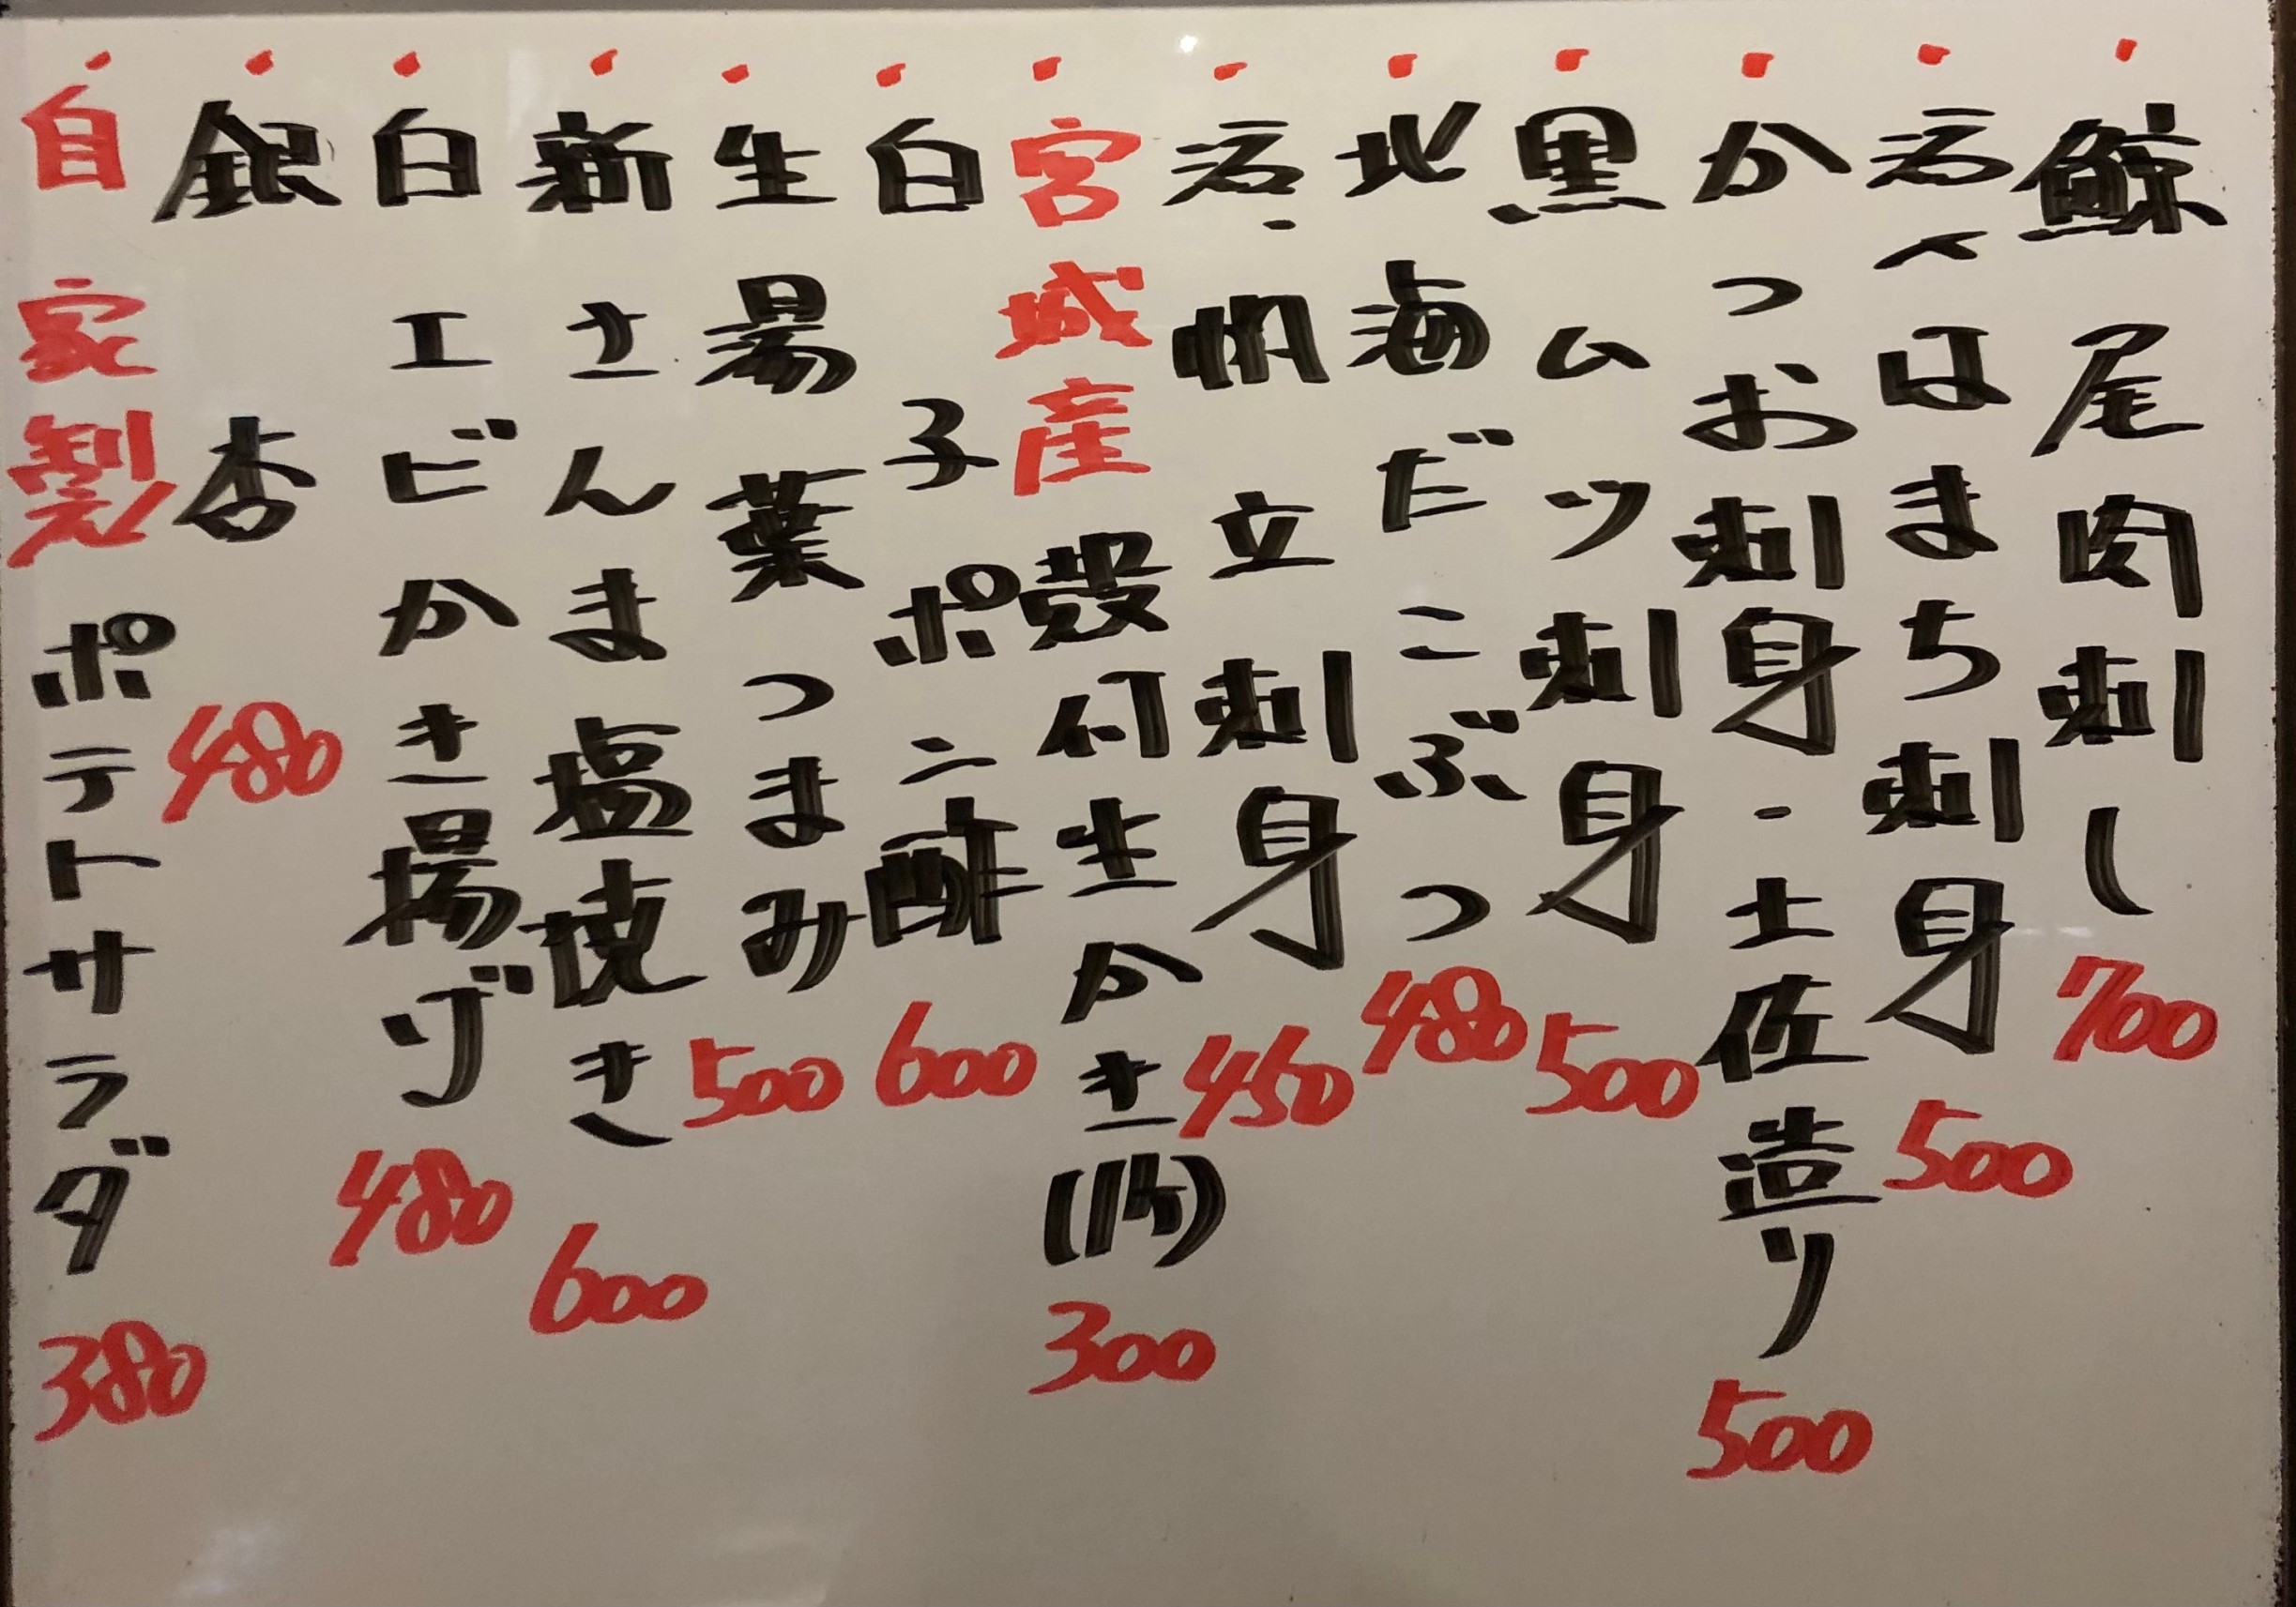 ・鯨尾肉刺し 700
・活〆はまち刺身 500
・かつお刺身・土佐造り 500
・黒ムツ刺身 500
・北海だこぶつ 480
・活・帆立刺身 450
・宮城産殻付生かき(1ヶ) 300
・白子ポン酢 600
・生湯葉つまみ 500
・新さんま塩焼き 600
・白エビかき揚げ 480
・銀杏 480
・自家製ポテトサラダ 380